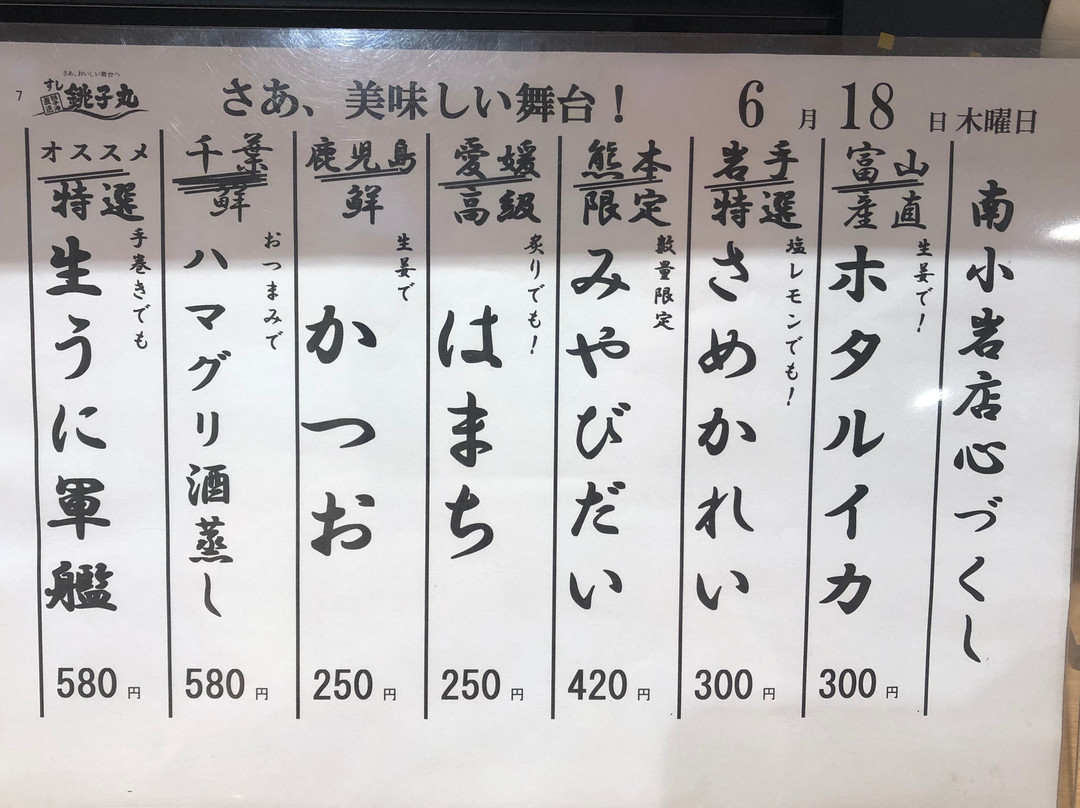 7
さあ、おいしい舞台へ
すし
銚子丸
さあ、美味しい舞台！
6月18日木曜日
南小岩店心づくし
富山
産直
生姜で！
ホタルイカ
300円
岩手
特選
塩レモンでも！
さめかれい
300円
熊本
限定
数量限定
みやびだい
420円
愛媛
高級
炙りでも！
はまち
250円
鹿児島
鮮
生姜で
かつお
250円
千葉
鮮
おつまみで
ハマグリ酒蒸し
580円
オススメ
特選
手巻きでも
生うに軍艦
580円